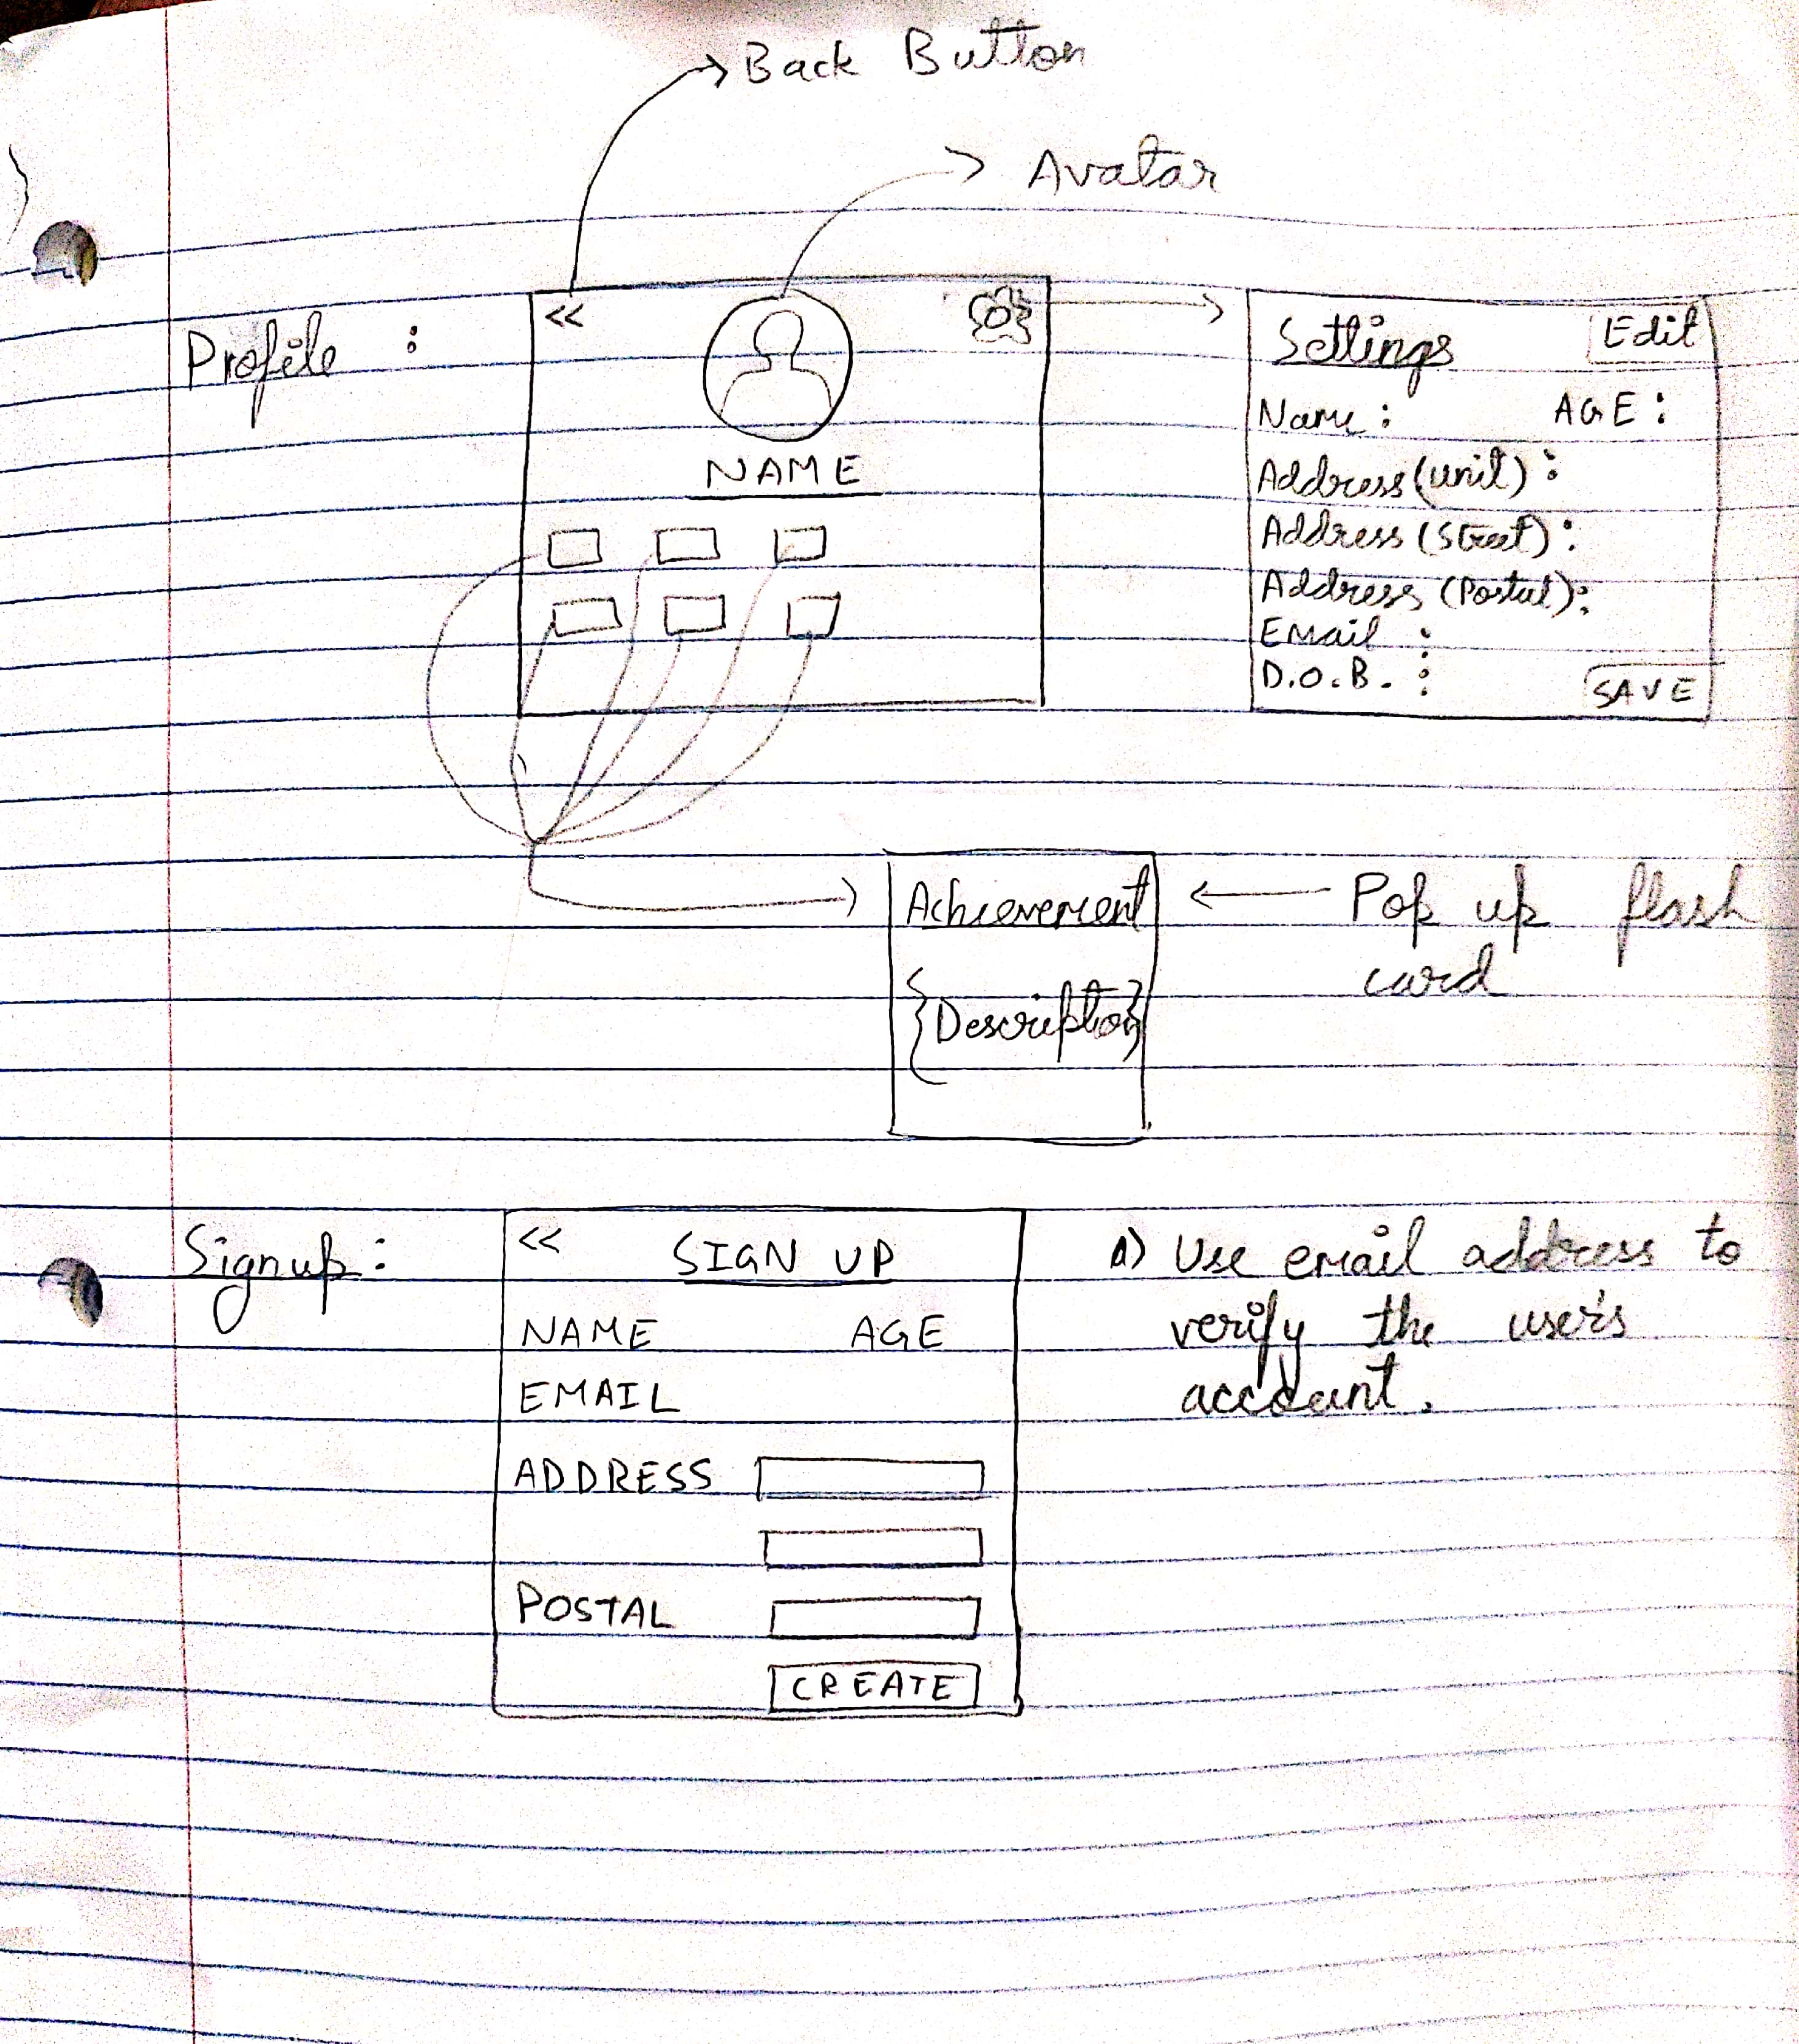 Back Button
Avatar
Profile :
<<
NAME
Settings Edit
Name : AGE :
Address (unit) :
Address (Street) :
Address (Postal) :
EMail :
D.O.B. :
SAVE
Achievement
{Description}
Pop up flash
card
Signup :
<< SIGN UP
NAME AGE
EMAIL
ADDRESS
POSTAL
CREATE
a) Use email address to
verify the user's
account.